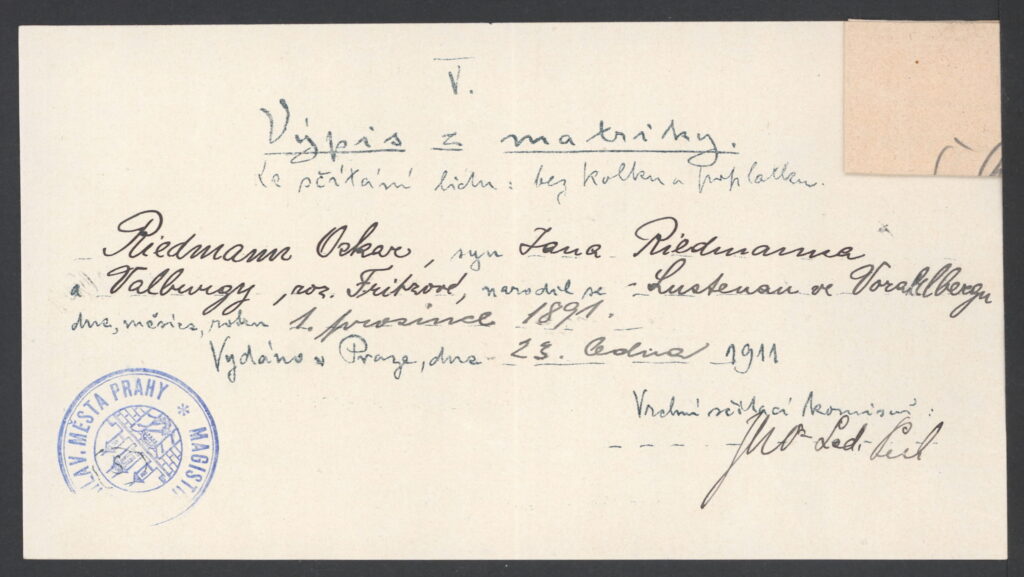 V.
Výpis z matriky.
Ke sčítání lidu: bez kolku a poplatku.
Riedmann Oskar, syn Jana Riedmanna
a Valburgy, roz. Fritzové, narodil se Lustenau ve Vorarlbergu
dne, měsíce, roku 1. prosince 1891.
Vydáno v Praze, dne 23. ledna 1911
Vrchní sčítací komisař:
HLAV. MĚSTA PRAHY * MAGISTR